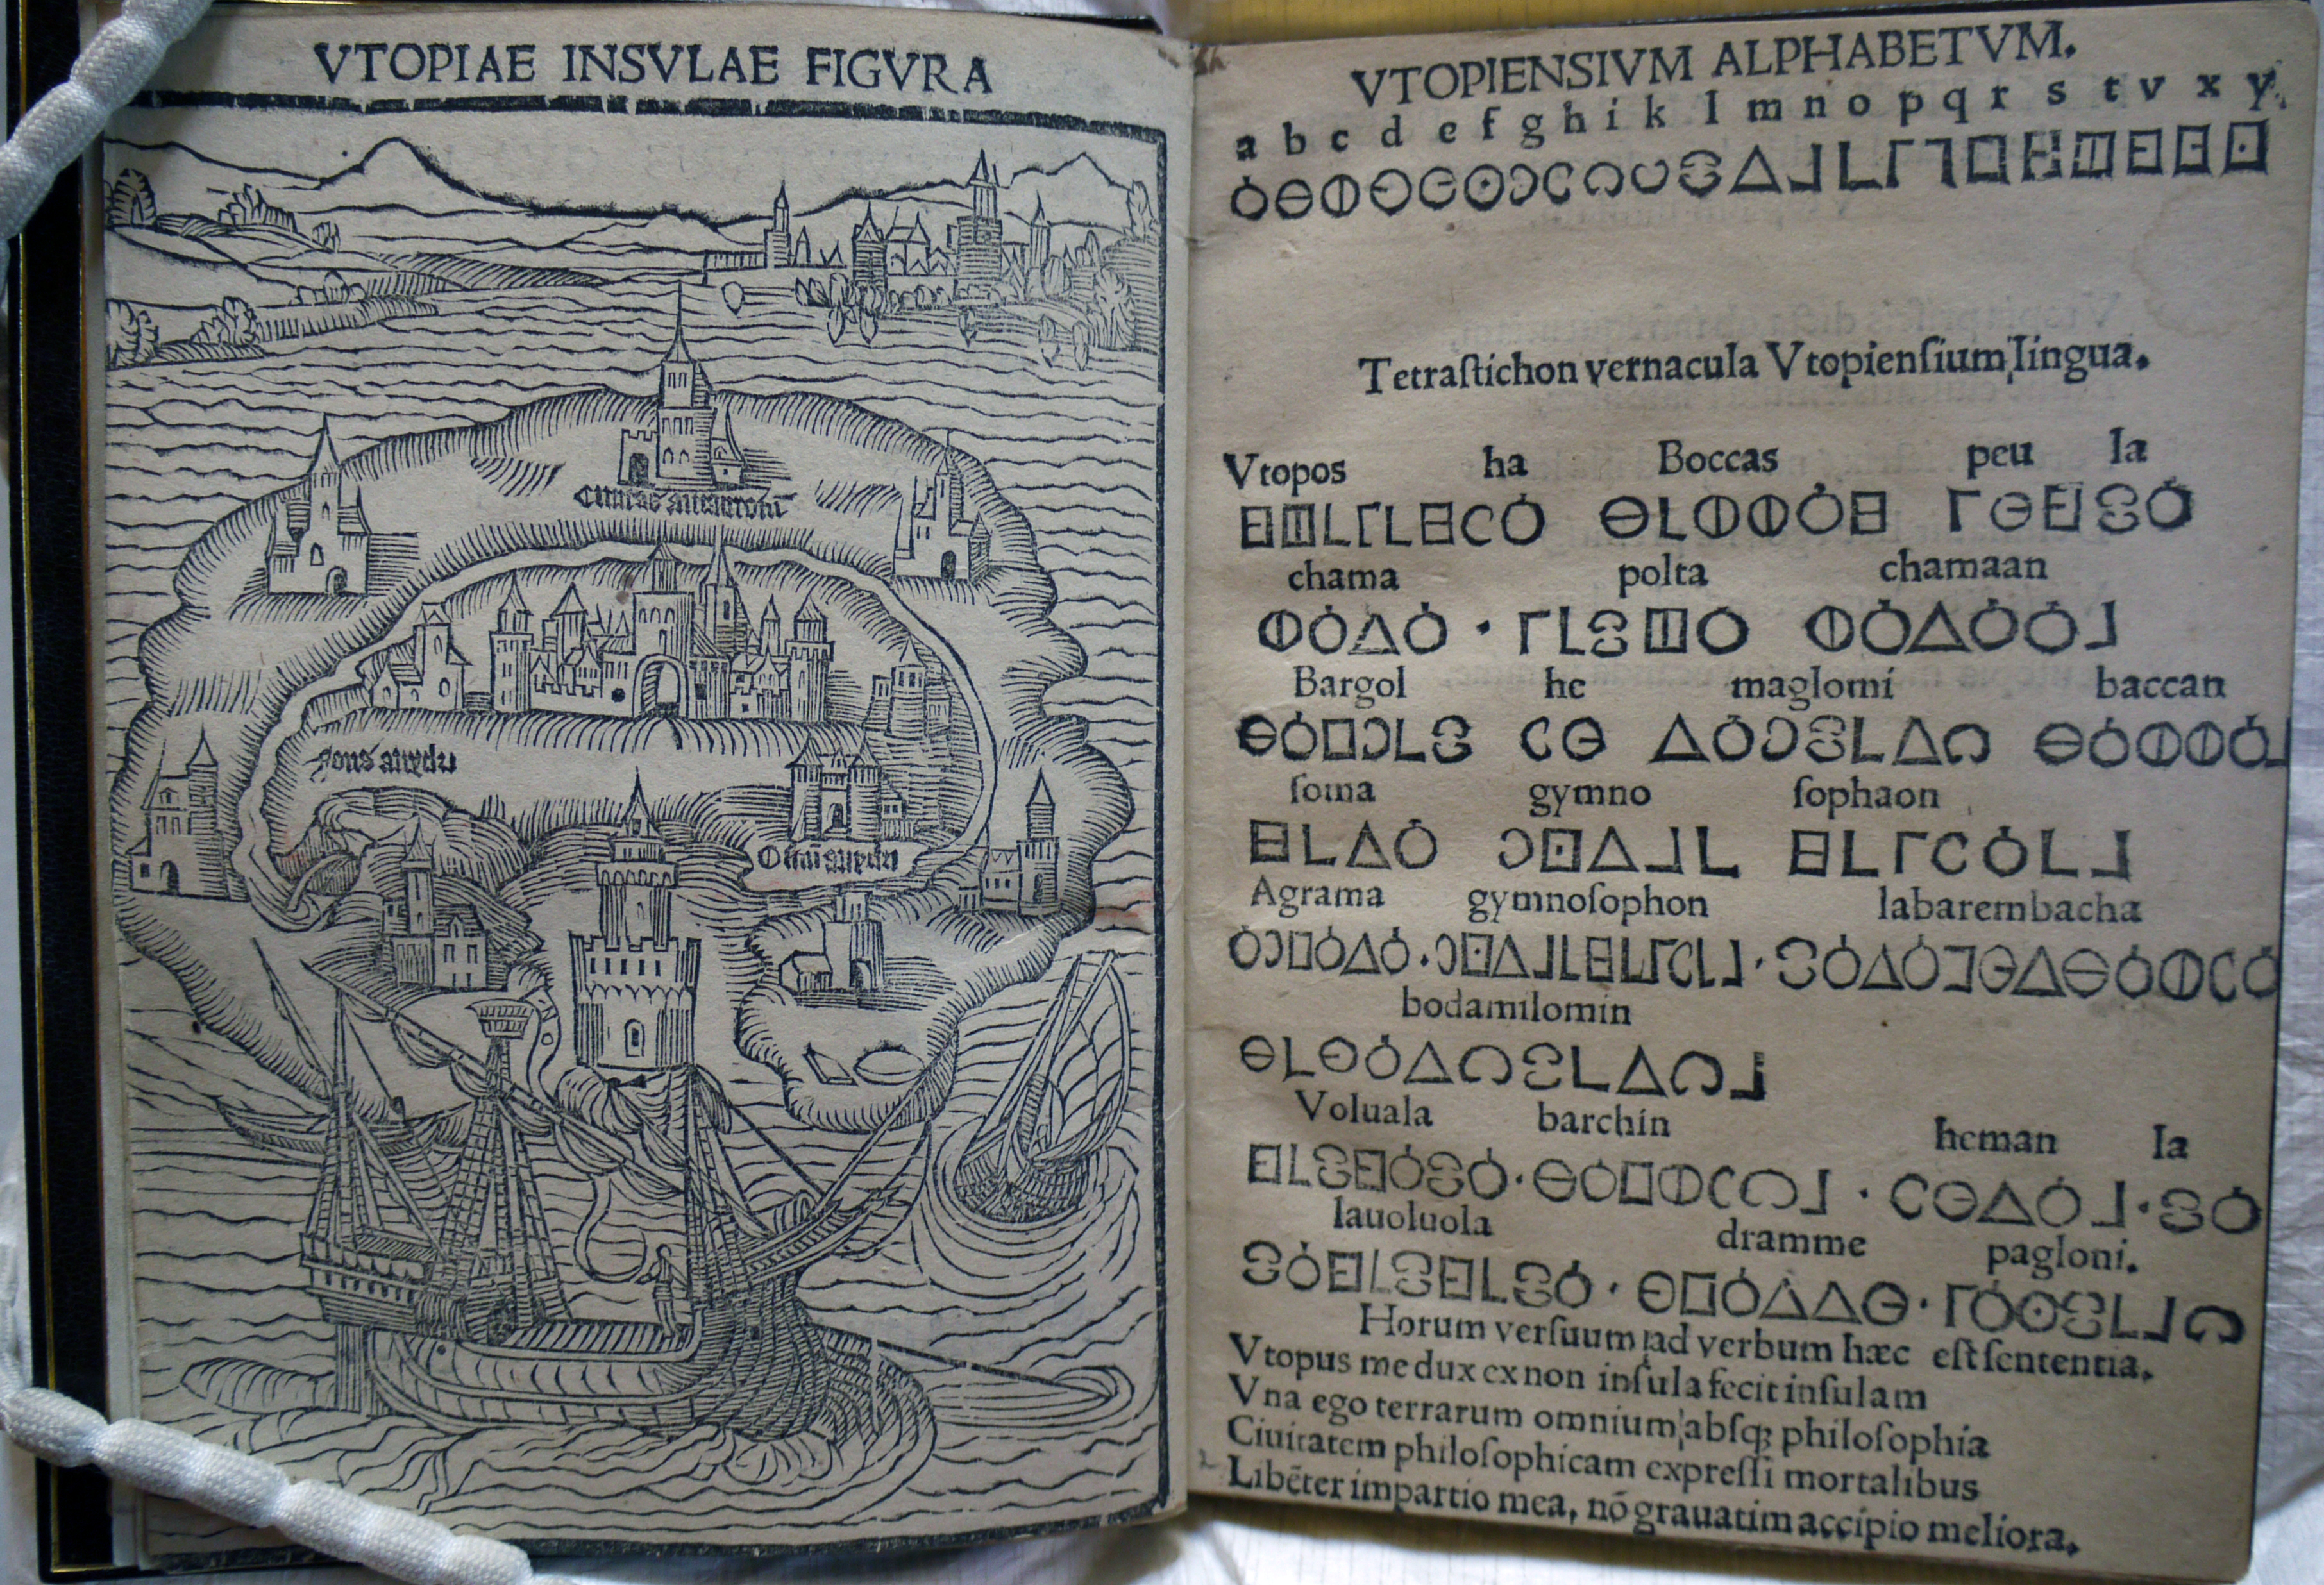 VTOPIAE INSVLAE FIGVRA
Ciuitas amaurotũ
fons anydri
Ostiũ anydri
VTOPIENSIVM ALPHABETVM.
a b c d e f g h i k l m n o p q r s t v x y
Tetraſtichon vernacula Vtopienſium lingua.
Vtopos ha Boccas peu la
chama polta chamaan
Bargol he maglomi baccan
ſoma gymno ſophaon
Agrama gymnoſophon labarembacha
bodamilomin
Voluala barchin heman la
lauoluola dramme pagloni.
Horum verſuum ad verbum hæc eſt ſententia.
Vtopus me dux ex non inſula fecit inſulam
Vna ego terrarum omnium abſq; philoſophia
Ciuitatem philoſophicam expreſſi mortalibus
Libẽter impartio mea, nõ grauatim accipio meliora.